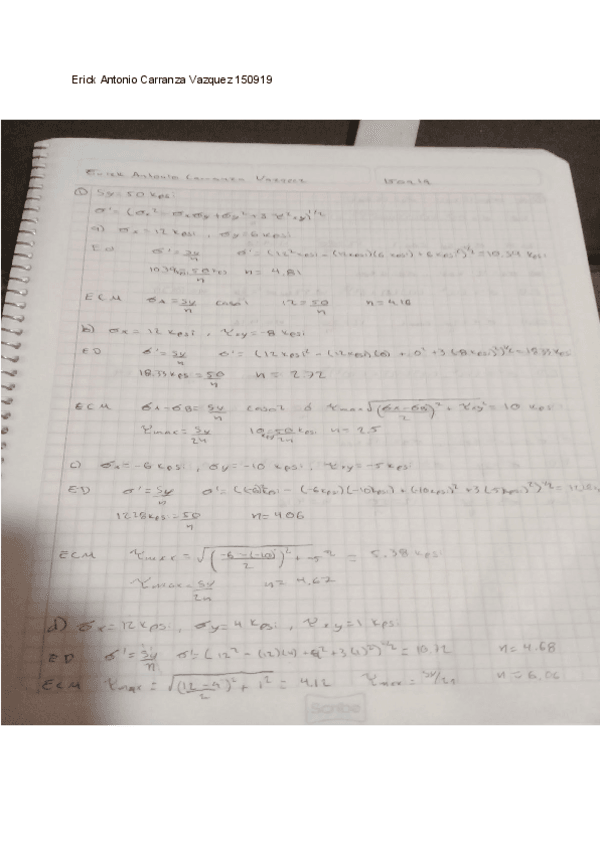 Erick Antonio Carranza Vazquez 150919
Erick Antonio Carranza Vazquez 150919
① Sy=50 kpsi
σ' = (σx² - σxσy + σy² + 3τ²xy)^1/2
a) σx = 12 kpsi , σy = 6 kpsi
ED σ' = Sy/n σ' = (12² kpsi - (12 kpsi)(6 kpsi) + 6 kpsi²)^1/2 = 10.39 kpsi
50/n n = 4.81
ECM σA = Sy/n caso 1 12 = 50/n n = 4.16
b) σx = 12 kpsi , τxy = -8 kpsi
ED σ' = Sy/n σ' = (12 kpsi)² - (12 kpsi)(0) + 0² + 3(-8 kpsi)²)^1/2 = 18.33 kpsi
18.33 kpsi = 50/n n = 2.72
ECM σA - σB = Sy/n caso 2 ó τmax = √((σx-σy)/2)² + τxy² = 10 kpsi
τmax = Sy/2n 10 kpsi = 50 kpsi/2n n = 2.5
c) σx = -6 kpsi , σy = -10 kpsi , τxy = -5 kpsi
ED σ' = Sy/n σ' = ((-6 kpsi)² - (-6 kpsi)(-10 kpsi) + (-10 kpsi)² + 3(-5 kpsi)²)^1/2 =
12.28 kpsi = 50/n n = 4.06
ECM τmax = √((-6-(-10))/2)² + -5² = 5.38 kpsi
τmax = Sy/2n n = 4.62
d) σx = 12 kpsi , σy = 4 kpsi , τxy = 1 kpsi
ED σ' = Sy/n σ' = (12² - (12)(4) + 4² + 3(1)²)^1/2 = 10.72 n = 4.68
ECM τmax = √((12-4)/2)² + 1² = 4.12 τmax = Sy/2n n = 6.06
Scribe